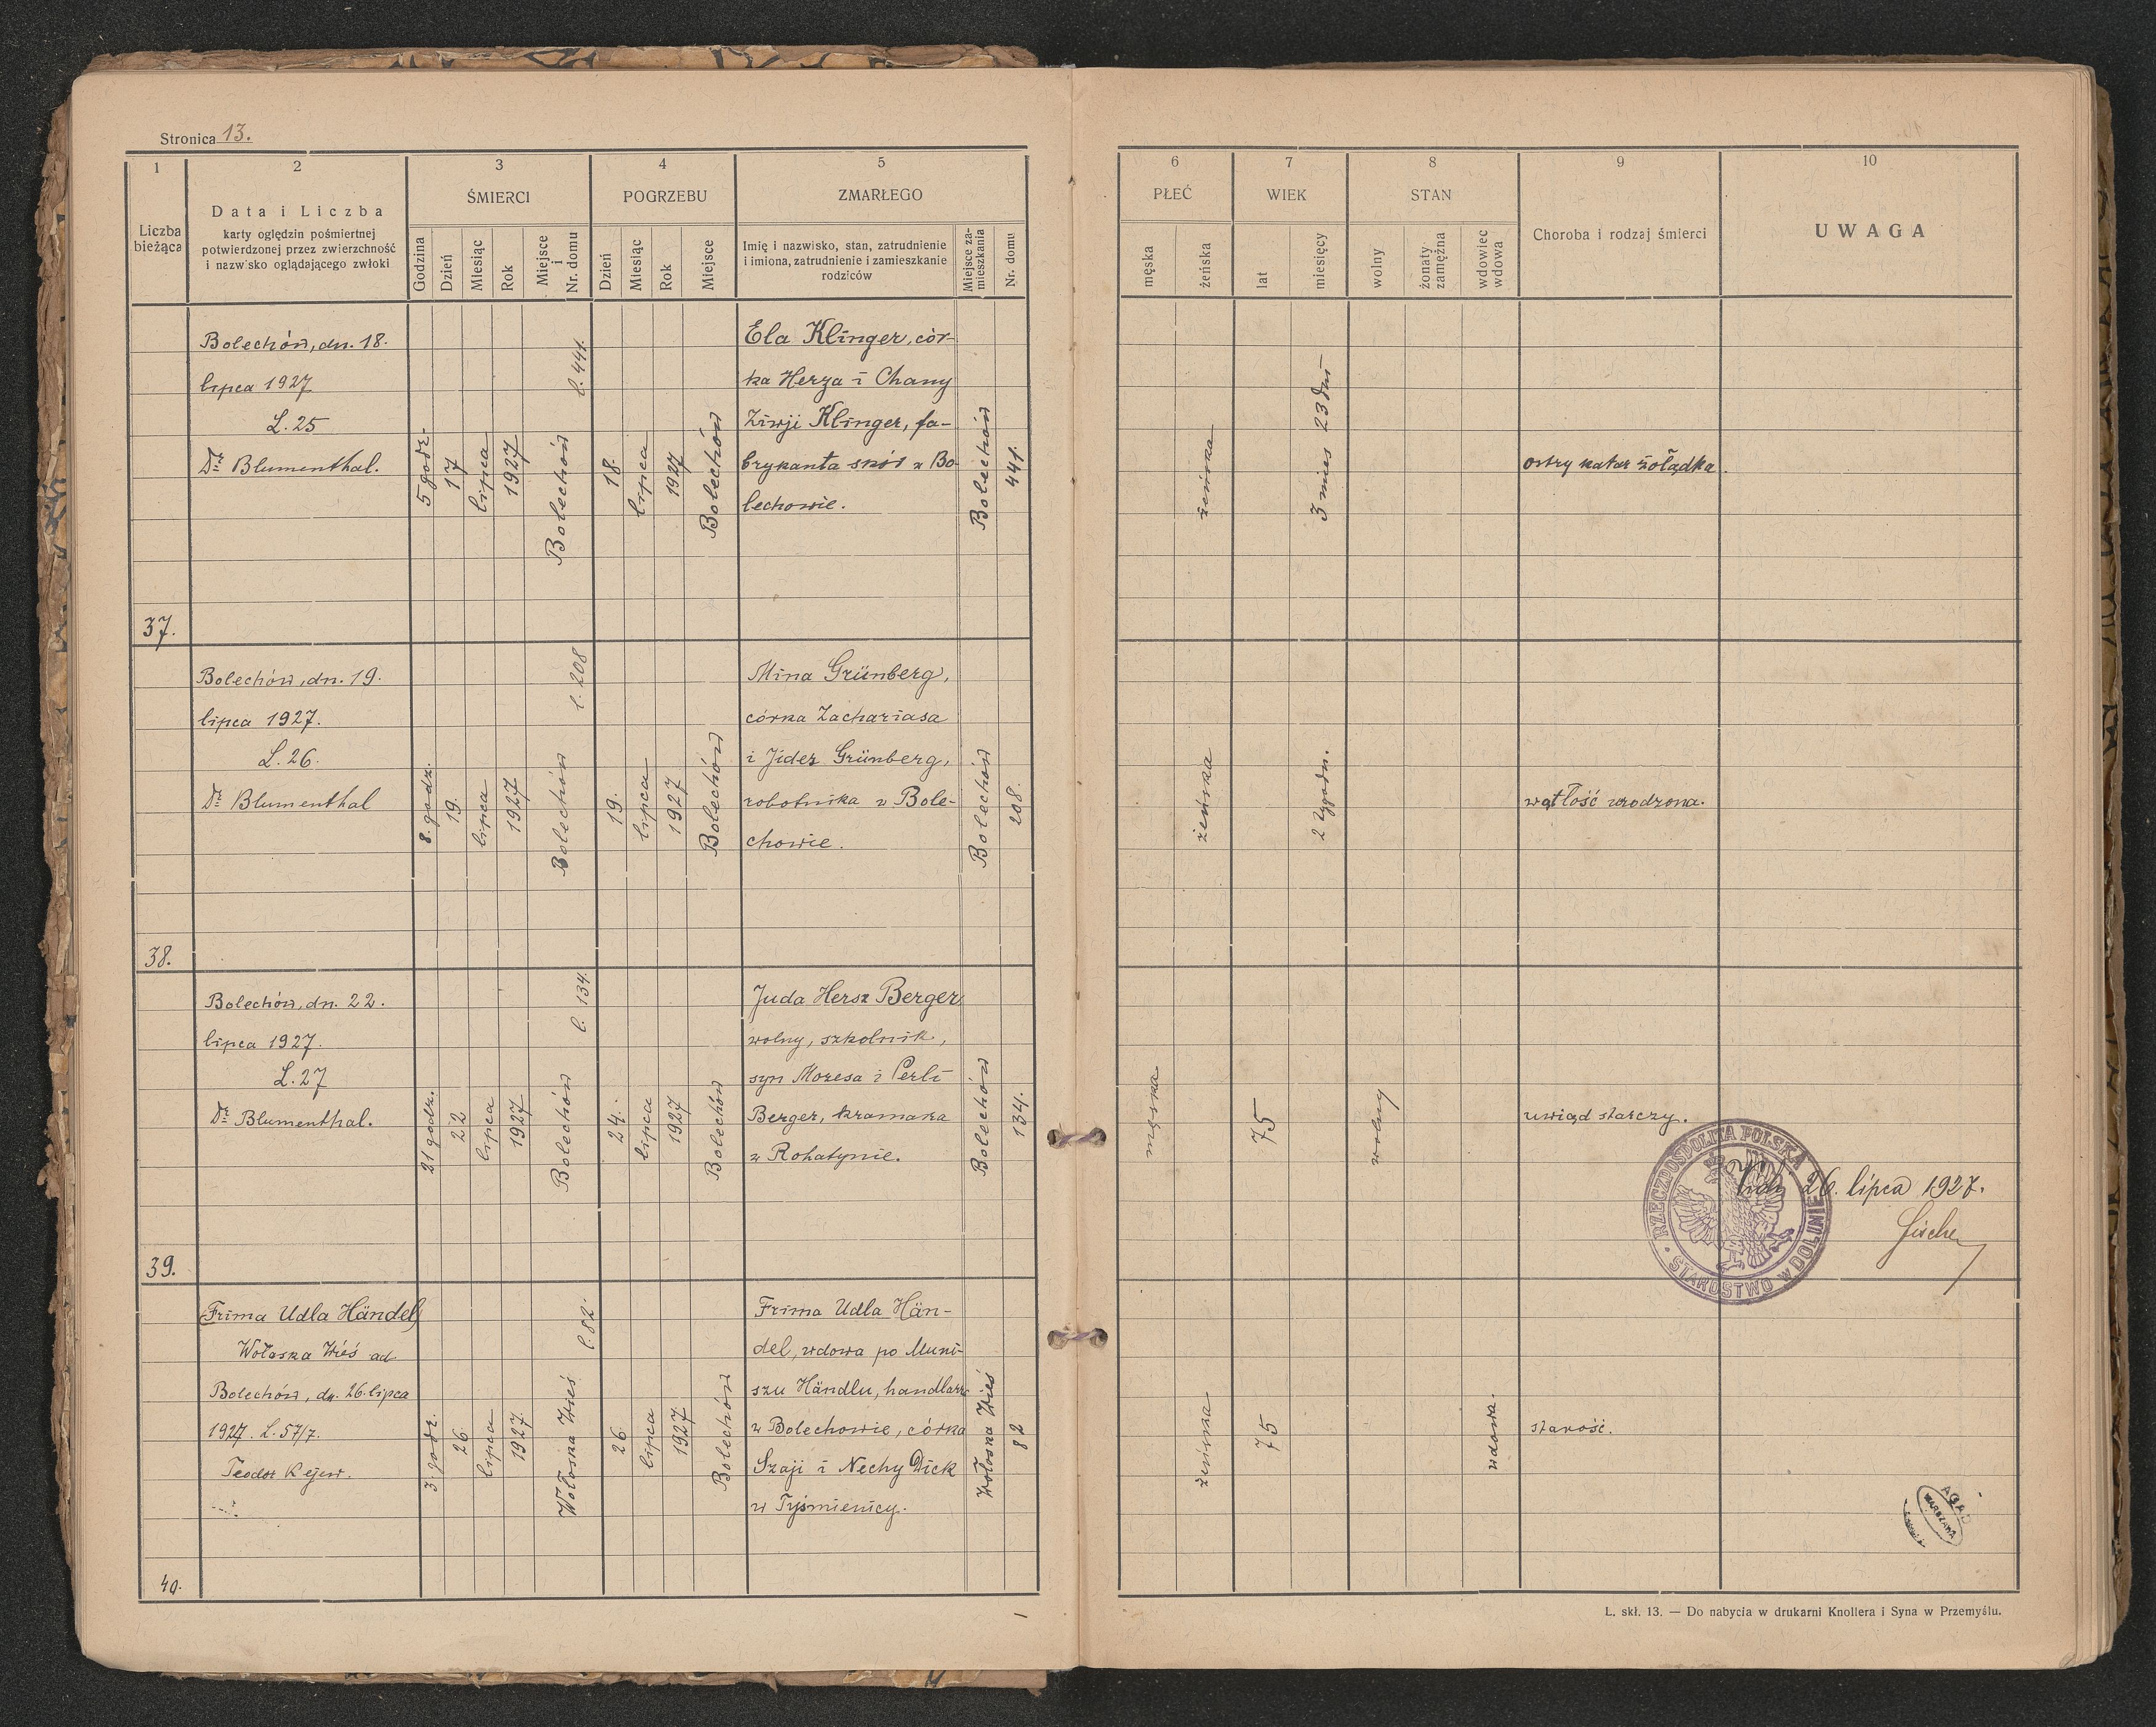 Stronica 13.
1
2
3
4
5
Liczba
bieżąca
Data i Liczba
karty oględzin pośmiertnej
potwierdzonej przez zwierzchność
i nazwisko oglądającego zwłoki
ŚMIERCI
Godzina
Dzień
Miesiąc
Rok
Miejsce
i
Nr. domu
POGRZEBU
Dzień
Miesiąc
Rok
Miejsce
ZMARŁEGO
Imię i nazwisko, stan, zatrudnienie
i imiona, zatrudnienie i zamieszkanie
rodziców
Miejsce za-
mieszkania
Nr. domu
6
7
8
9
10
PŁEĆ
męska
żeńska
WIEK
lat
miesięcy
STAN
wolny
żonaty
zamężna
wdowiec
wdowa
Choroba i rodzaj śmierci
UWAGA
37.
Bolechów, dn. 18.
lipca 1927
L. 25
Dr Blumenthal.
5 godz.
17
lipca
1927
Bolechów
l. 441.
18.
lipca
1927
Bolechów
Ela Klinger, cór-
ka Herza i Chany
Ziwji Klinger, fa-
brykanta skór w Bo-
lechowie.
Bolechów
441.
żeńska
3 mies 23 dni
ostry katar żołądka.
38.
Bolechów, dn. 19.
lipca 1927.
L. 26.
Dr Blumenthal
8. godz.
19.
lipca
1927
Bolechów
l. 208
19.
lipca
1927
Bolechów
Mina Grünberg,
córka Zachariasa
i Jides Grünberg,
robotnika w Bole-
chowie.
Bolechów
208.
żeńska
2 tygodn.
wątłość wrodzona.
39.
Bolechów, dn. 22.
lipca 1927.
L. 27
Dr Blumenthal.
21 godz.
22
lipca
1927
Bolechów
l. 134.
24.
lipca
1927
Bolechów
Juda Hersz Berger,
wolny, szkolnik,
syn Mozesa i Perli
Berger, kramarza
w Rohatynie.
Bolechów
134.
męska
75
wolny
uwiąd starczy.
RZECZPOSPOLITA POLSKA
STAROSTWO W DOLINIE
26. lipca 1927.
40.
Frima Udla Händel,
Wołoska Wieś ad
Bolechów, dn. 26. lipca
1927. L. 57/7.
Teodor
3. godz.
26
lipca
1927.
Wołoska Wieś
l. 82.
26
lipca
1927
Bolechów
Frima Udla Hän-
del, wdowa po Muni-
szu Händlu, handlarz
w Bolechowie, córka
Szaji i Nechy Dick
w Tyśmienicy.
Wołoska Wieś
82
żeńska
75
wdowa.
starość.
AGAD
WARSZAWA
L. skł. 13. — Do nabycia w drukarni Knollera i Syna w Przemyślu.